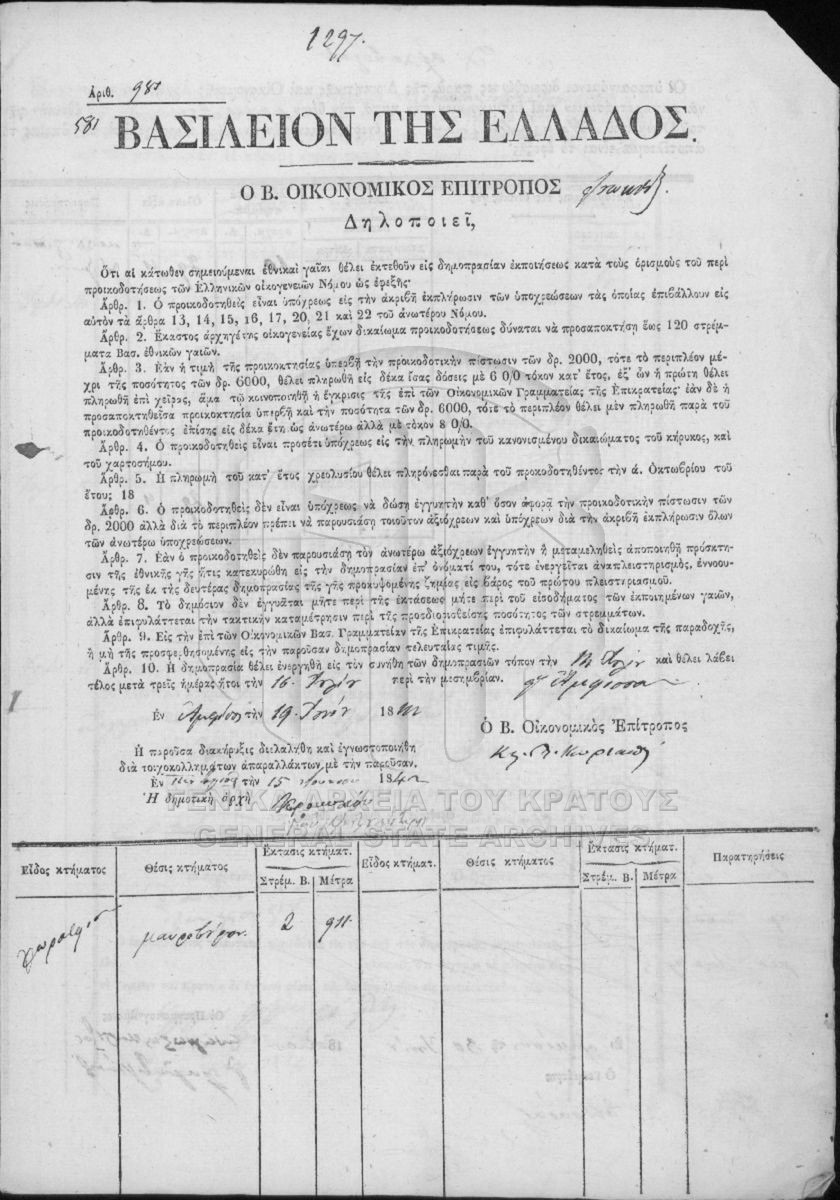 1297.
Ἀριθ. 981
581
ΒΑΣΙΛΕΙΟΝ ΤΗΣ ΕΛΛΑΔΟΣ.
Ο Β. ΟΙΚΟΝΟΜΙΚΟΣ ΕΠΙΤΡΟΠΟΣ
Δηλοποιεῖ,
Ὅτι αἱ κάτωθεν σημειούμεναι ἐθνικαὶ γαῖαι θέλει ἐκτεθοῦν εἰς δημοπρασίαν ἐκποιήσεως κατὰ τοὺς ὁρισμοὺς τοῦ περὶ
προικοδοτήσεως τῶν Ἑλληνικῶν οἰκογενειῶν Νόμου ὡς ἐφεξῆς·
Ἄρθρ. 1. Ὁ προικοδοτηθεὶς εἶναι ὑπόχρεως εἰς τὴν ἀκριβῆ ἐκπλήρωσιν τῶν ὑποχρεώσεων τὰς ὁποίας ἐπιβάλλουν εἰς
αὐτὸν τὰ ἄρθρα 13, 14, 15, 16, 17, 20, 21 καὶ 22 τοῦ ἀνωτέρω Νόμου.
Ἄρθρ. 2. Ἕκαστος ἀρχηγέτης οἰκογενείας ἔχων δικαίωμα προικοδοτήσεως δύναται νὰ προσαποκτήσῃ ἕως 120 στρέμ-
ματα Βασ. ἐθνικῶν γαιῶν.
Ἄρθρ. 3. Ἐὰν ἡ τιμὴ τῆς προικοκτησίας ὑπερβῇ τὴν προικοδοτικὴν πίστωσιν τῶν δρ. 2000, τότε τὸ περιπλέον μέ-
χρι τῆς ποσότητος τῶν δρ. 6000, θέλει πληρωθῆ εἰς δέκα ἴσας δόσεις μὲ 6 0/0 τόκον κατ' ἔτος, ἐξ' ὧν ἡ πρώτη θέλει
πληρωθῆ ἐπὶ χεῖρας, ἅμα τῷ κοινοποιηθῇ ἡ ἔγκρισις τῆς ἐπὶ τῶν Οἰκονομικῶν Γραμματείας τῆς Ἐπικρατείας· ἐὰν δὲ ἡ
προσαποκτηθεῖσα προικοκτησία ὑπερβῇ καὶ τὴν ποσότητα τῶν δρ. 6000, τότε τὸ περιπλέον θέλει μὲν πληρωθῆ παρὰ τοῦ
προικοδοτηθέντος ἐπίσης εἰς δέκα ἔτη ὡς ἀνωτέρω ἀλλὰ μὲ τόκον 8 0/0.
Ἄρθρ. 4. Ὁ προικοδοτηθεὶς εἶναι προσέτι ὑπόχρεως εἰς τὴν πληρωμὴν τοῦ κανονισμένου δικαιώματος τοῦ κήρυκος, καὶ
τοῦ χαρτοσήμου.
Ἄρθρ. 5. Ἡ πληρωμὴ τοῦ κατ' ἔτος χρεολυσίου θέλει πληρόνεσθαι παρὰ τοῦ προκοδοτηθέντος τὴν ά. Ὀκτωβρίου τοῦ
ἔτους; 18
Ἄρθρ. 6. Ὁ προικοδοτηθεὶς δὲν εἶναι ὑπόχρεως νὰ δώσῃ ἐγγυητὴν καθ' ὅσον ἀφορᾷ τὴν προικοδοτικὴν πίστωσιν τῶν
δρ. 2000 ἀλλὰ διὰ τὸ περιπλέον πρέπει νὰ παρουσιάσῃ τοιοῦτον ἀξιόχρεων καὶ ὑπόχρεων διὰ τὴν ἀκριβῆ ἐκπλήρωσιν ὅλων
τῶν ἀνωτέρω ὑποχρεώσεων.
Ἄρθρ. 7. Ἐὰν ὁ προικοδοτηθεὶς δὲν παρουσιάσῃ τὸν ἀνωτέρω ἀξιόχρεων ἐγγυητὴν ἢ μεταμεληθεὶς ἀποποιηθῇ πρόσκτη-
σιν τῆς ἐθνικῆς γῆς ἥτις κατεκυρώθη εἰς τὴν δημοπρασίαν ἐπ' ὀνόματί του, τότε ἐνεργεῖται ἀναπλειστηρισμὸς, ἐννοου-
μένης τῆς ἐκ τῆς δευτέρας δημοπρασίας τῆς γῆς προκυψομένης ζημίας εἰς βάρος τοῦ πρώτου πλειστηριασμοῦ.
Ἄρθρ. 8. Τὸ δημόσιον δὲν ἐγγυᾶται μήτε περὶ τῆς ἐκτάσεως μήτε περὶ τοῦ εἰσοδήματος τῶν ἐκποιημένων γαιῶν,
ἀλλὰ ἐπιφυλάττεται τὴν τακτικὴν καταμέτρησιν περὶ τῆς προσδιορισθείσης ποσότητος τῶν στρεμμάτων.
Ἄρθρ. 9. Εἰς τὴν ἐπὶ τῶν Οἰκονομικῶν Βασ. Γραμματείαν τῆς Ἐπικρατείας ἐπιφυλάττεται τὸ δικαίωμα τῆς παραδοχῆς,
ἢ μὴ τῆς προσφερθησομένης εἰς τὴν παροῦσαν δημοπρασίαν τελευταίας τιμῆς.
Ἄρθρ. 10. Ἡ δημοπρασία θέλει ἐνεργηθῆ εἰς τὸν συνήθη τῶν δημοπρασιῶν τόπον τὴν Ἰουλίου καὶ θέλει λάβει
τέλος μετὰ τρεῖς ἡμέρας ἤτοι τὴν 16 Ἰουλίου περὶ τὴν μεσημβρίαν. Ἄμφισσα
Ἐν Ἀμφίσσῃ τὴν 19 18
Ὁ Β. Οἰκονομικὸς Ἐπίτροπος
Ἡ παροῦσα διακήρυξις διελαλήθη καὶ ἐγνωστοποιήθη
διὰ τοιχοκολλημάτων ἀπαραλλάκτων μὲ τὴν παροῦσαν.
Ἐν τὴν 15 184
Ἡ δημοτικὴ ἀρχὴ
ΓΕΝΙΚΑ ΑΡΧΕΙΑ ΤΟΥ ΚΡΑΤΟΥΣ
GENERAL STATE ARCHIVES
Εἶδος κτήματος Θέσις κτήματος Ἔκτασις κτήματ. Εἶδος κτήματ. Θέσις κτήματος Ἔκτασις κτήματ. Παρατηρήσεις
Στρέμ. Β. Μέτρα Στρέμ. Β. Μέτρα
2 911